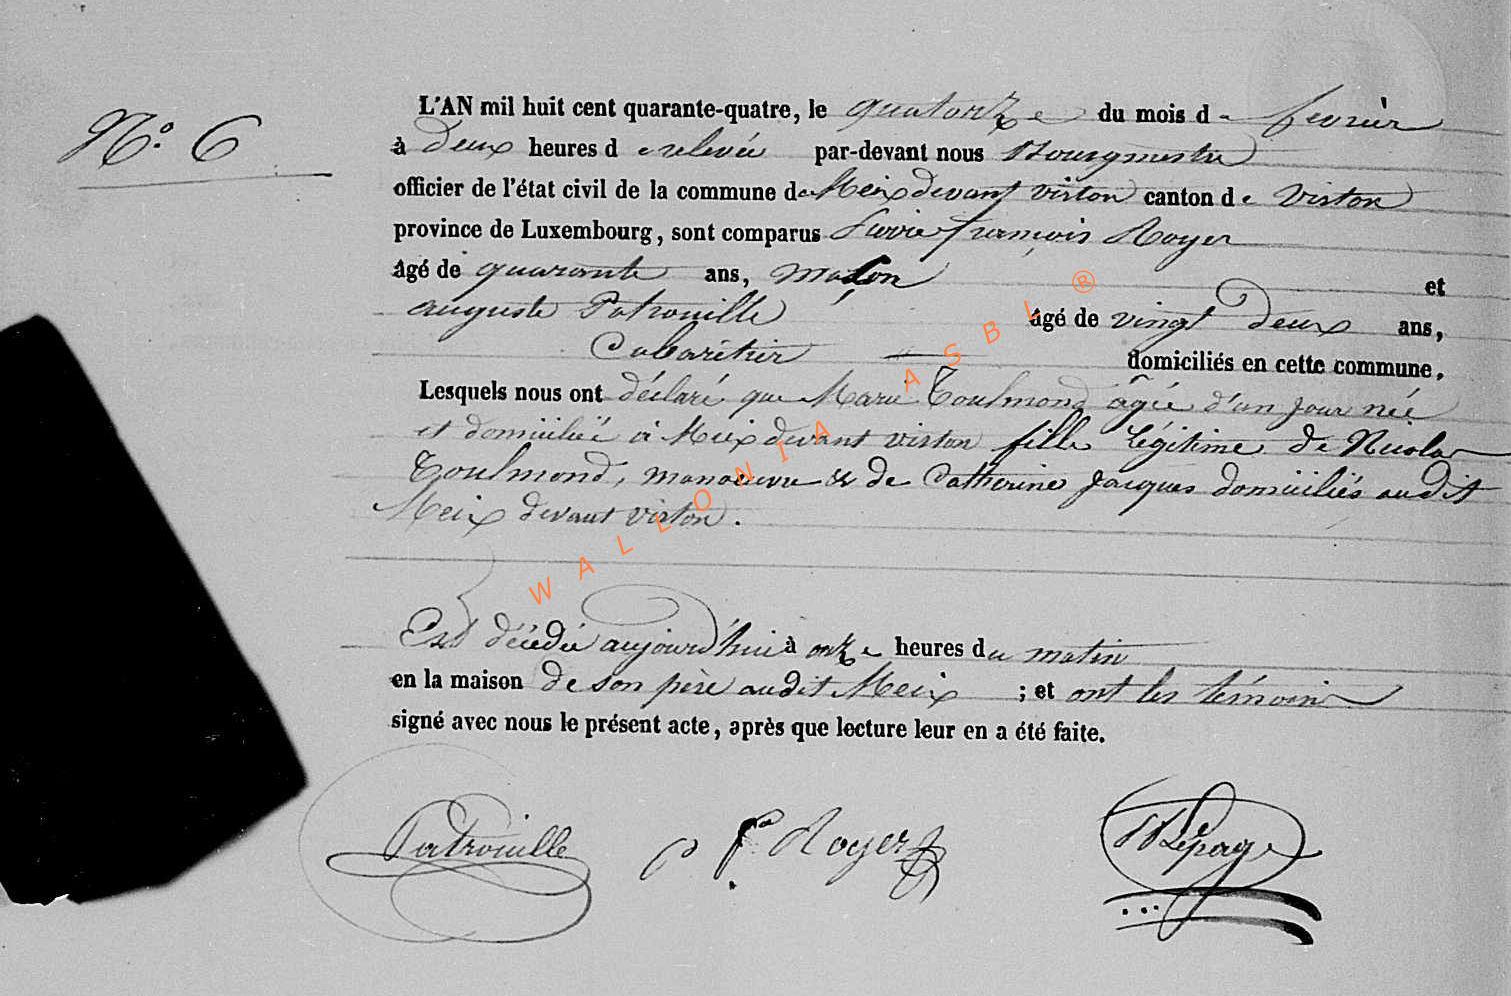 N.° 6
L'AN mil huit cent quarante-quatre, le quatorze du mois de fevrier
à deux heures de relevée par-devant nous Bourgmestre
officier de l'état civil de la commune de Meix devant virton canton de Virton
province de Luxembourg, sont comparus Pierre françois Royer
âgé de quarante ans, maçon et
auguste Patrouille âgé de vingt deux ans,
Cabaretier domiciliés en cette commune.
Lesquels nous ont déclaré que Marie Toulmond âgée d'un jour née
et domiciliée à Meix devant virton fille légitime de Nicolas
Toulmond, manoeuvre & de Catherine Jacques domiciliés audit
Meix devant virton.
Est décédée aujourd'hui à onze heures du matin
en la maison de son père audit Meix ; et ont les témoins
signé avec nous le présent acte, après que lecture leur en a été faite.
Patrouille P. fs Royer Lepage
WALLONIA ASBL ®